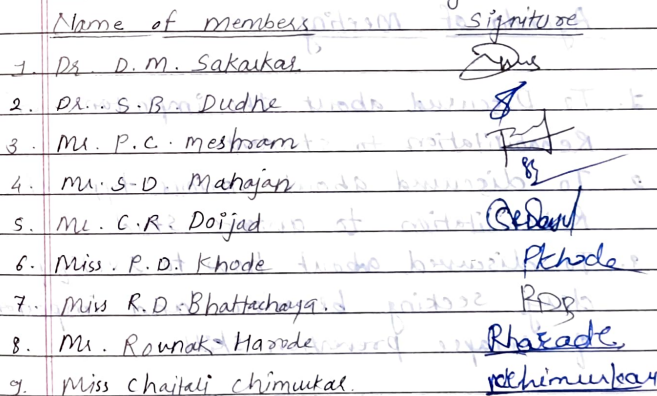 Name of members Signiture
1. Dr. D.M. Sakarkar
2. Dr. S.B. Dudhe 8
3. Mr. P.C. meshram
4. Mr. S.D. Mahajan
5. Mr. C.R. Doijad
6. Miss. P.D. Khode Pkhode
7. Miss R.D. Bhattacharya. RDB
8. Mr. Rounak Harode Rharade
9. Miss Chaitali Chimurkar.